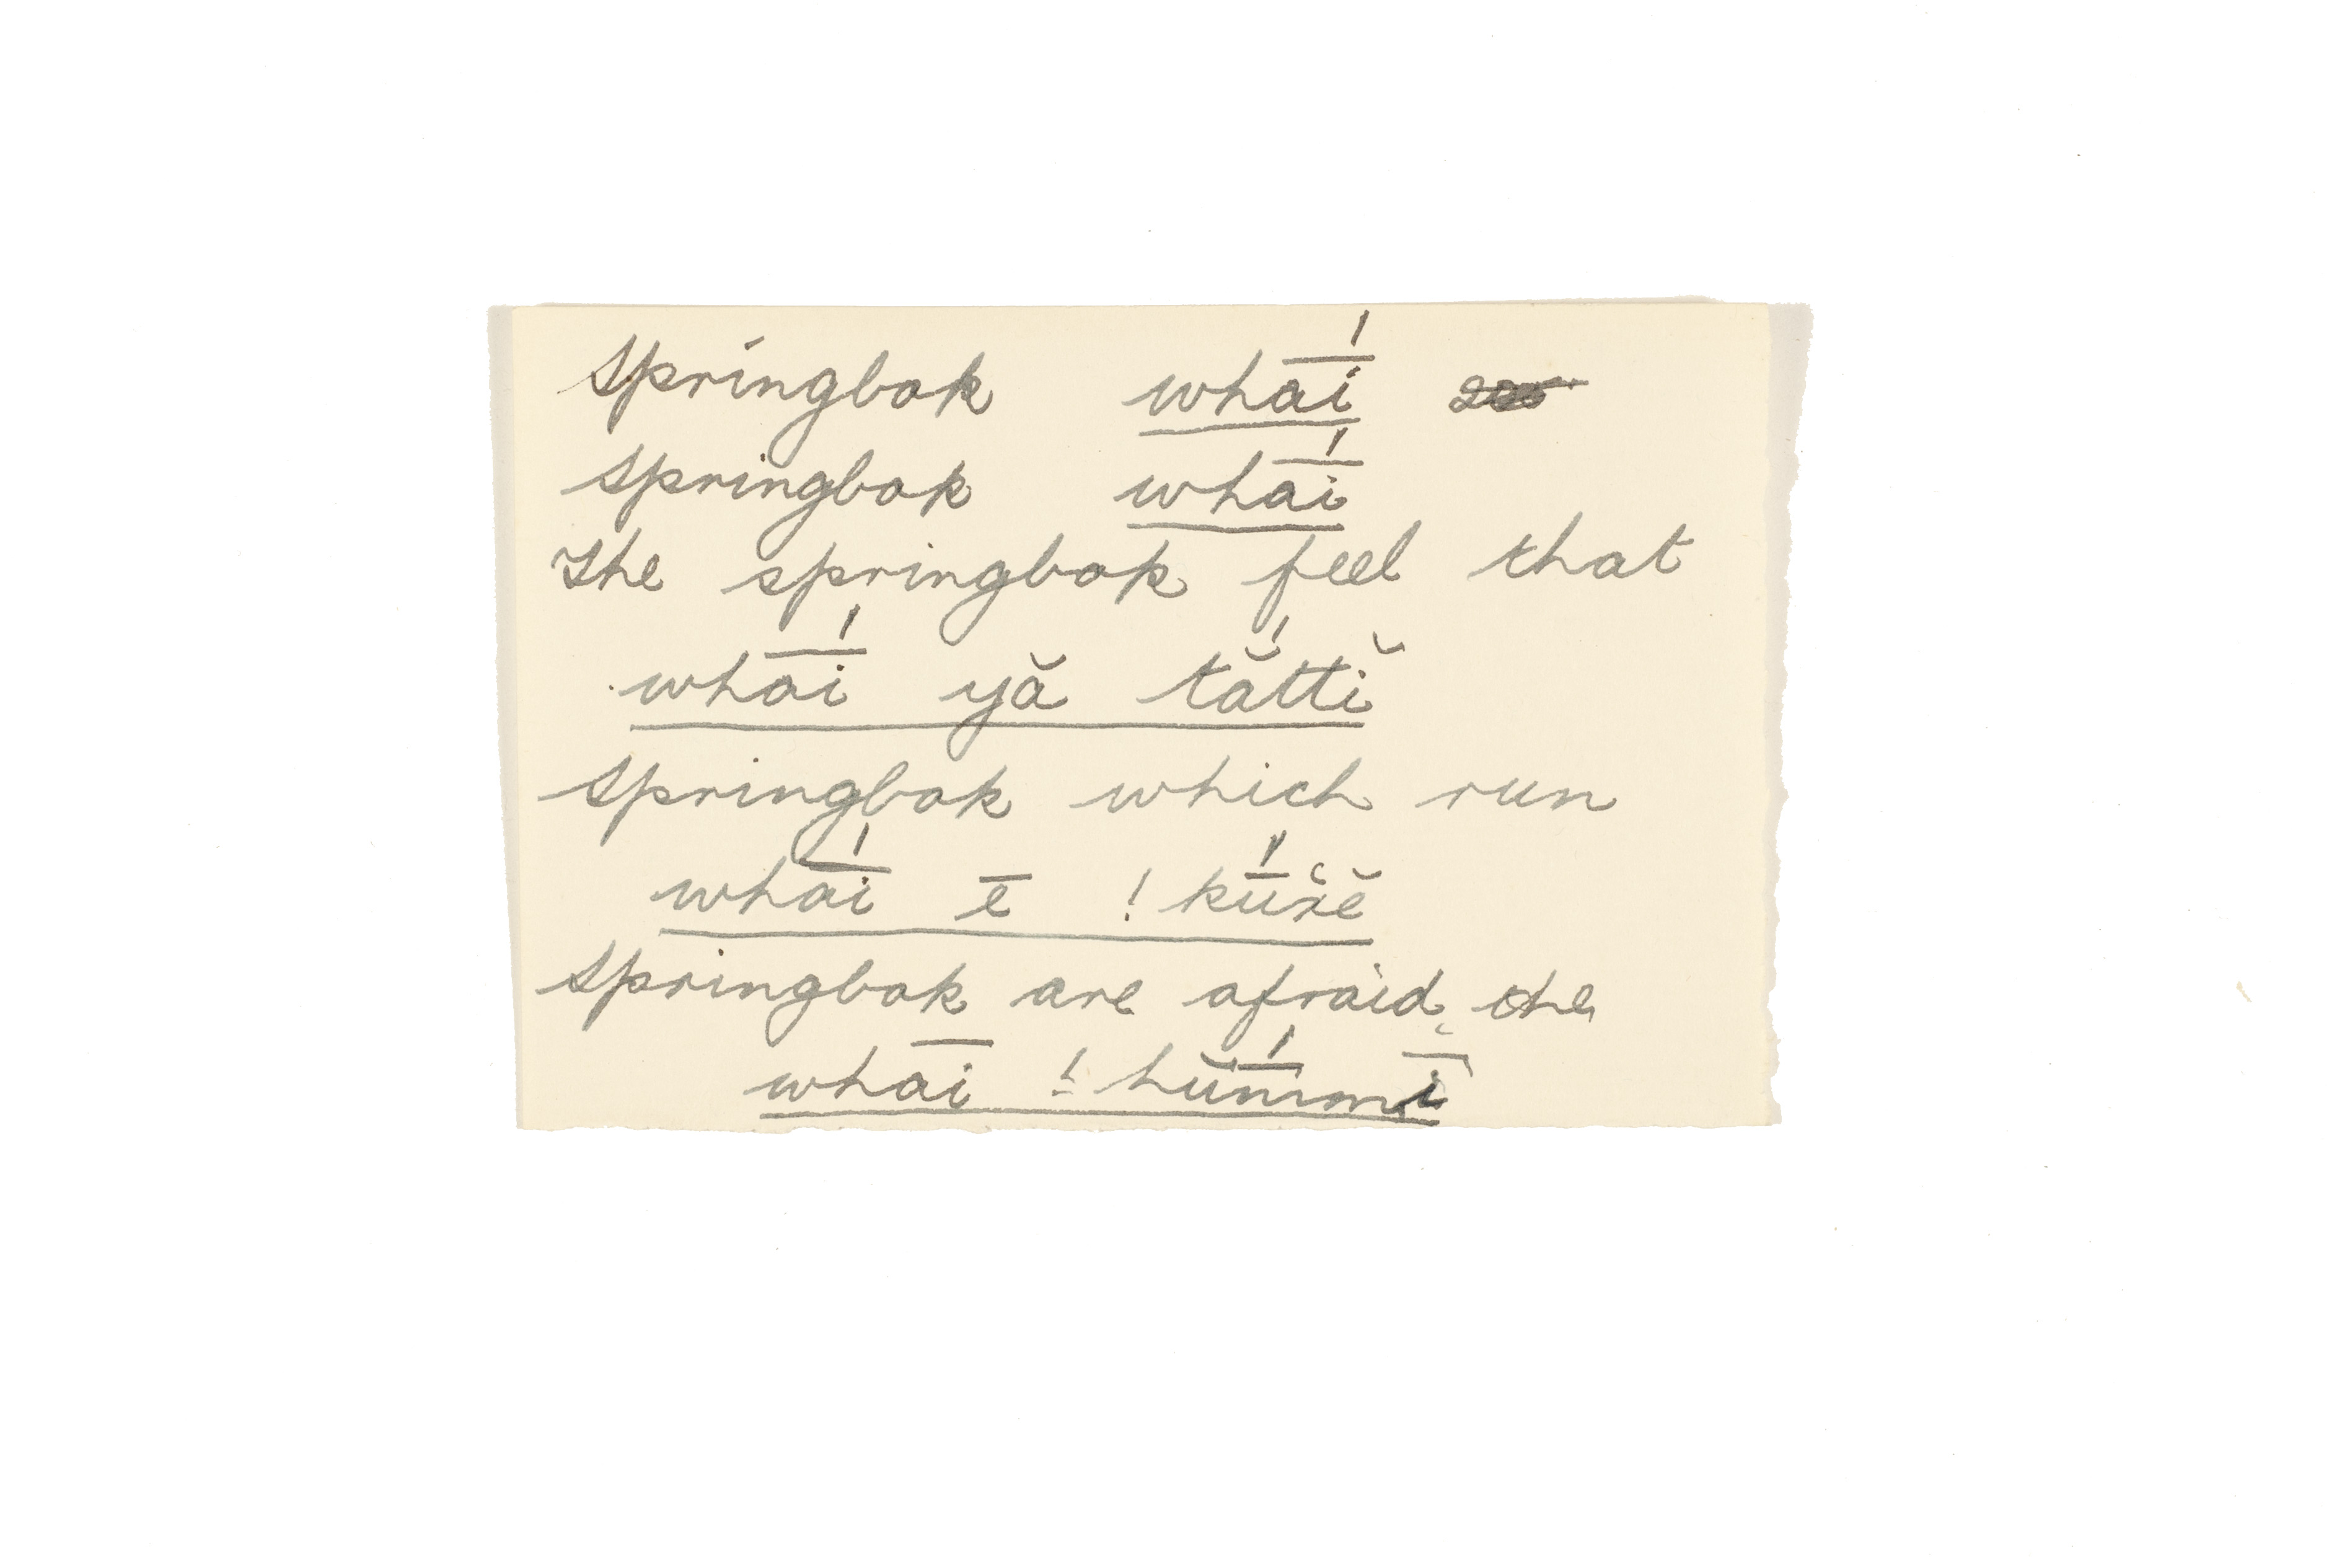 Springbok whā́i
Springbok whā́i
The springbok feel that
whā́i yă tắttĭ
Springbok which run
whā́i ē !kū́ïsĕ
Springbok are afraid, the
whāi !hŭm̄́mī